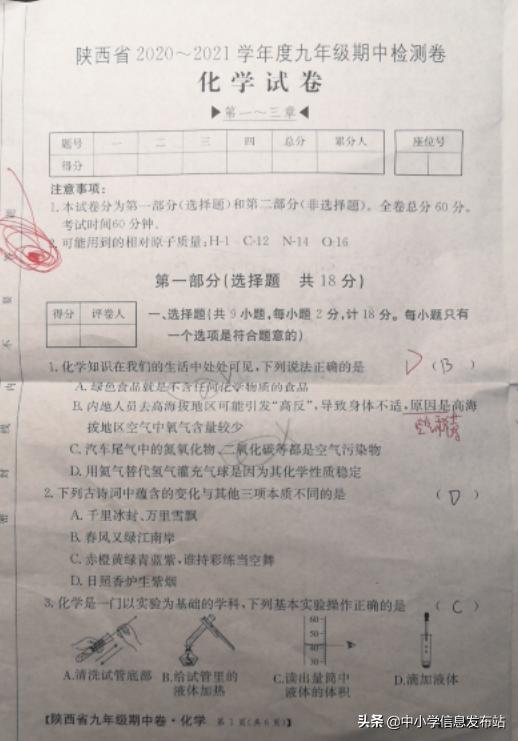 陕西省2020～2021学年度九年级期中检测卷
化学试卷
▶第一～三章◀
题号 一 二 三 四 总分 累分人
得分
座位号
注意事项:
1.本试卷分为第一部分(选择题)和第二部分(非选择题)。全卷总分60分。
考试时间60分钟。
2.可能用到的相对原子质量:H-1 C-12 N-14 O-16
第一部分(选择题 共18分)
得分 评卷人
一、选择题(共9小题,每小题2分,计18分。每小题只有
一个选项是符合题意的)
1.化学知识在我们的生活中处处可见,下列说法正确的是 (B)
A.绿色食品就是不含任何化学物质的食品
B.内地人员去高海拔地区可能引发“高反”,导致身体不适,原因是高海
拔地区空气中氧气含量较少
C.汽车尾气中的氮氧化物、二氧化碳等都是空气污染物
D.用氦气替代氢气灌充气球是因为其化学性质稳定
2.下列古诗词中蕴含的变化与其他三项本质不同的是 (D)
A.千里冰封、万里雪飘
B.春风又绿江南岸
C.赤橙黄绿青蓝紫,谁持彩练当空舞
D.日照香炉生紫烟
3.化学是一门以实验为基础的学科,下列基本实验操作正确的是 (C)
60
50
40
30
A.清洗试管底部 B.给试管里的 C.读出量筒中 D.滴加液体
液体加热 液体的体积
【陕西省九年级期中卷·化学 第1页(共6页)】
头条 @中小学信息发布站